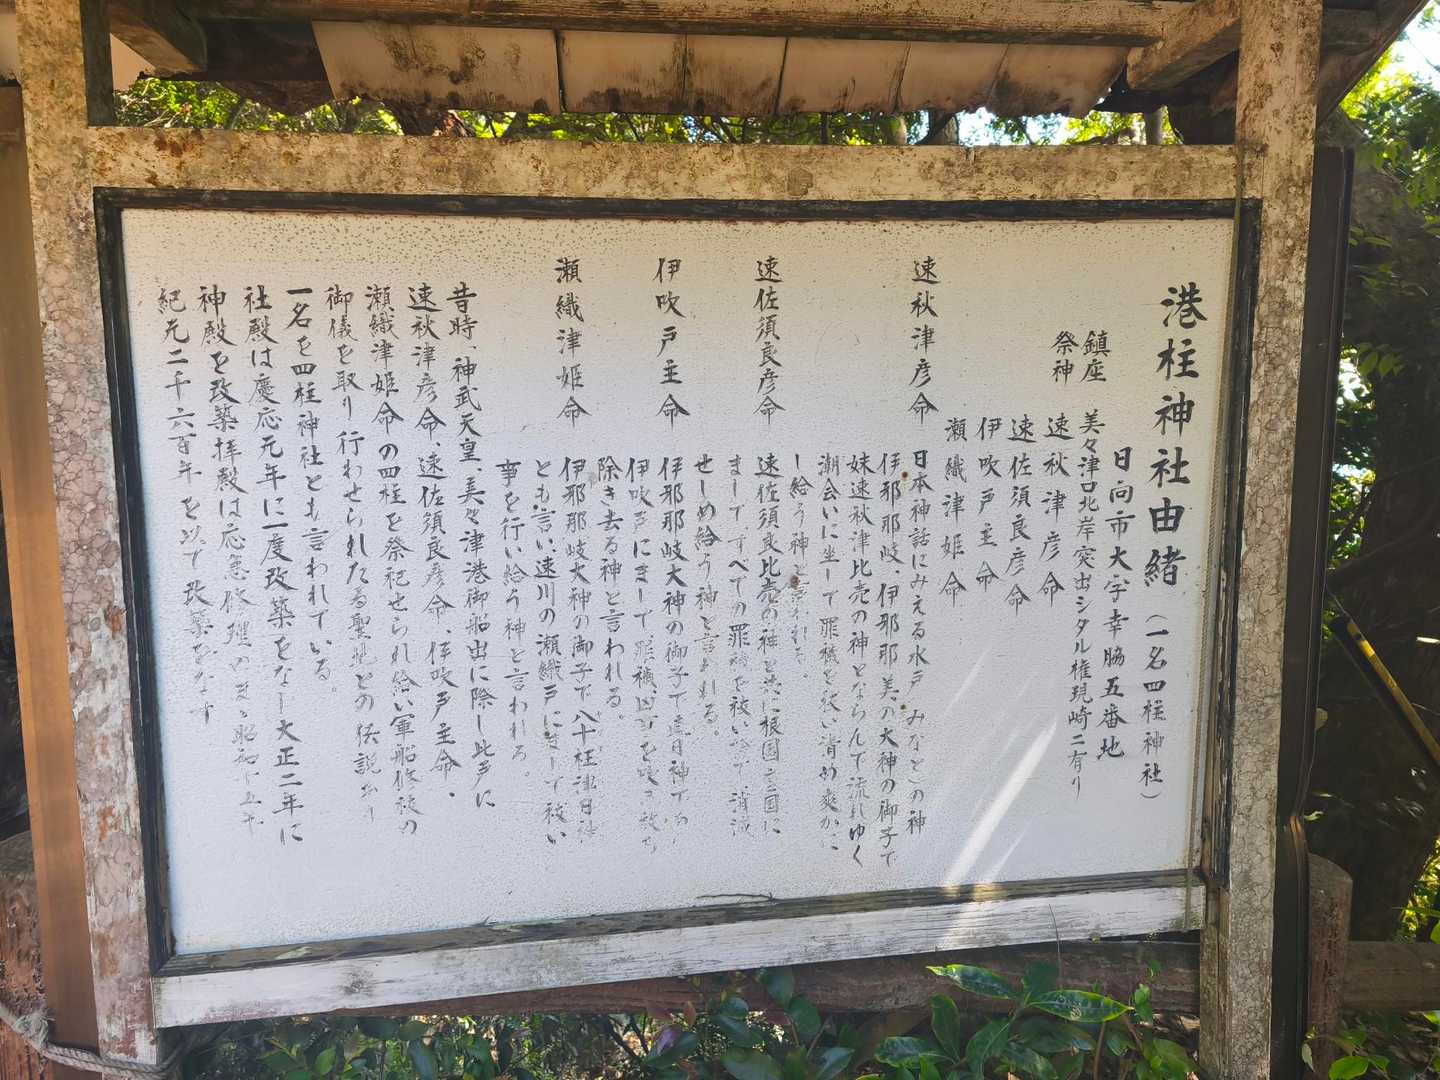 港柱神社由緒（一名四柱神社）
日向市大字幸脇五番地
鎮座 美々津口北岸突出シタル権現崎ニ有り
祭神 速秋津彦命
速佐須良彦命
伊吹戸主命
瀬織津姫命
速秋津彦命 日本神話にみえる水戸（みなと）の神
伊那那岐、伊那那美の大神の御子で
妹速秋津比売の神とならんで流れゆく
潮会いに坐して罪穢を祓い清め爽かに
し給う神と言われる。
速佐須良彦命 速佐須良比売の神と共に根国 国に
ましてすべての罪穢を祓い 消滅
せしめ給う神と言われる。
伊吹戸主命 伊那那岐大神の御子で直日神
伊吹戸にまして罪穢、凶事を
除き去る神と言われる。
瀬織津姫命 伊那那岐大神の御子で八十枉津日神
とも言い、速川の瀬織戸にまして祓い
事を行い給う神と言われる。
昔時、神武天皇、美々津港御船出に際し此戸に
速秋津彦命、速佐須良彦命、伊吹戸主命、
瀬織津姫命の四柱を祭祀せられ給い軍船修祓の
御儀を取り行わせられたる聖地との伝説あり
一名を四柱神社とも言われている。
社殿は慶応元年に一度改築をなし大正二年に
神殿を改築拝殿は応急修理のまゝ昭和十五年
紀元二千六百年を以て改築をなす